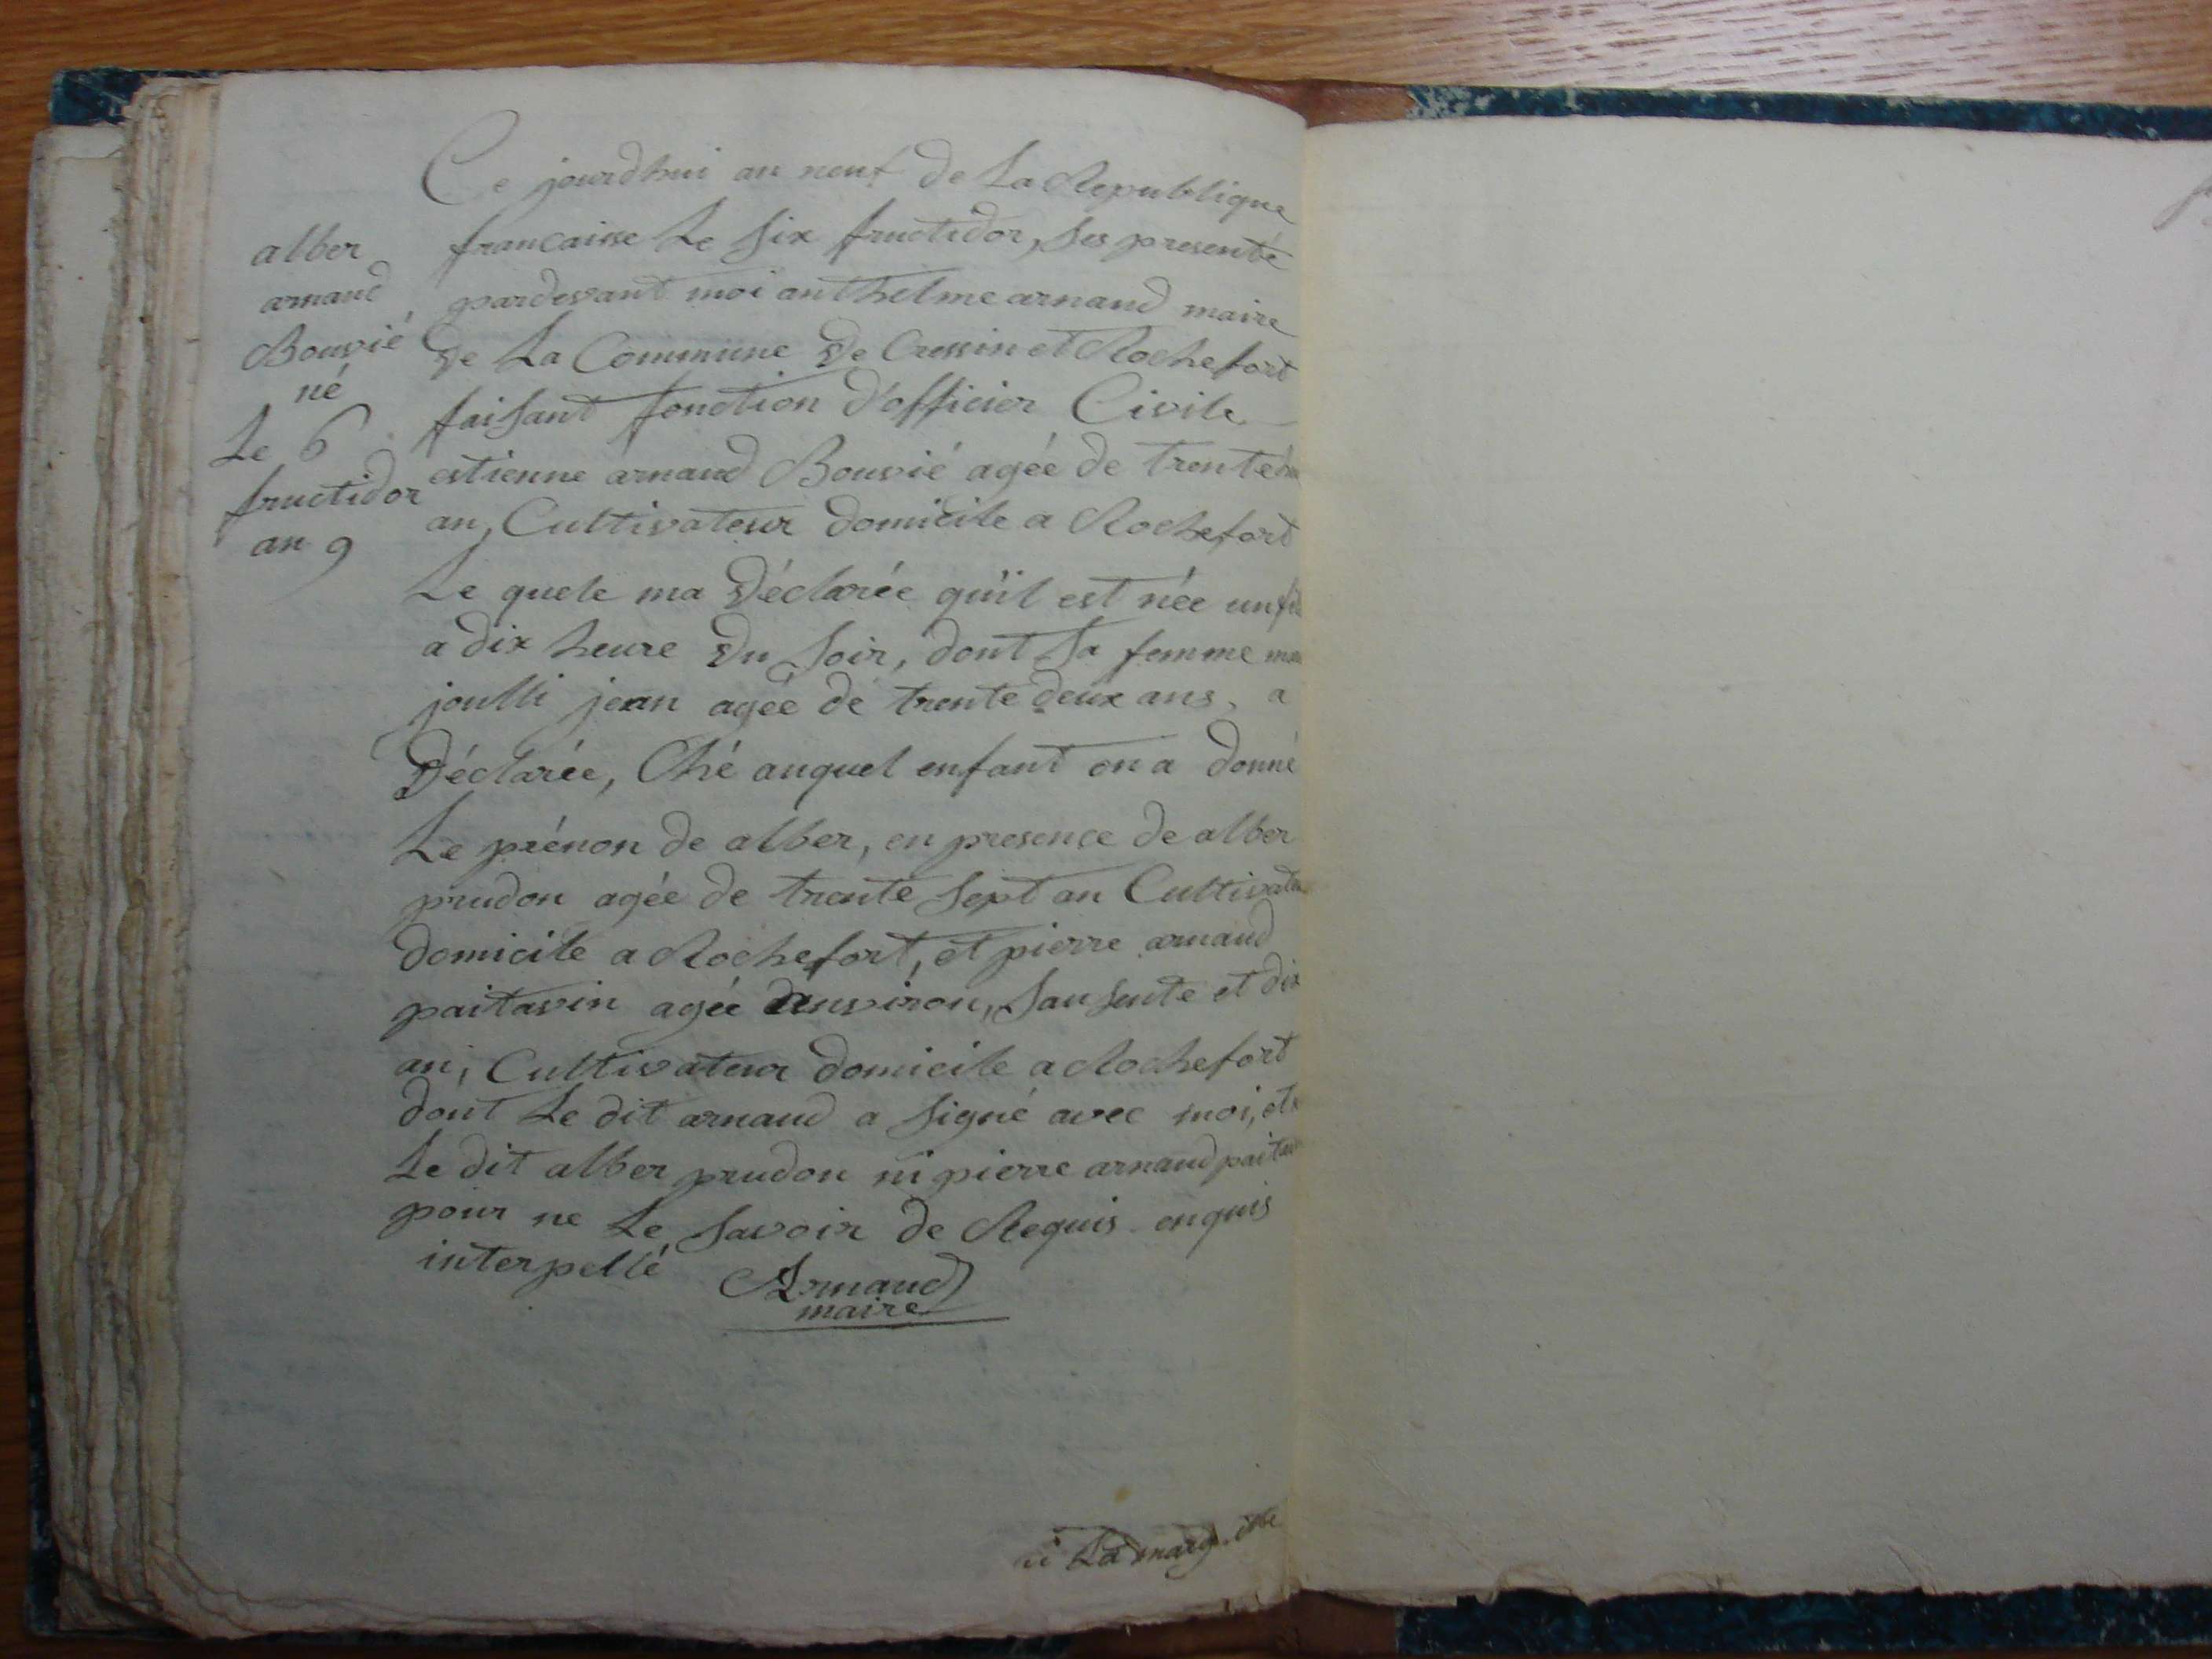 Ce jourdhui an neuf de La Republique
francaisse Le six fructidor, ses presenté
pardevant moi anthelme arnaud maire
de La Commune de Cressin et Rochefort
faisant fonction d'officier Civile
estienne arnaud Bouvié agée de trente
an, Cultivateur domicile a Rochefort
Le quele ma Déclarée qu'il est née un
a dix heure du soir, dont sa femme
joulli jean agée de trente deux ans, a
Déclarée, Ché auquel enfant on a donné
Le prénon de alber, en presence de alber
prudon agée de trente sept an
domicile a Rochefort, et pierre arnaud
paitavin agée denviron, sausente et dix
an, Cultivateur domicile a Rochefort
dont Le dit arnaud a signé avec moi,
Le dit alber prudon ni pierre arnaud
pour ne Le savoir de Requis enquis
interpellé
Arnaud
maire
alber
arnaud
Bouvié
né
Le 6
fructidor
an 9